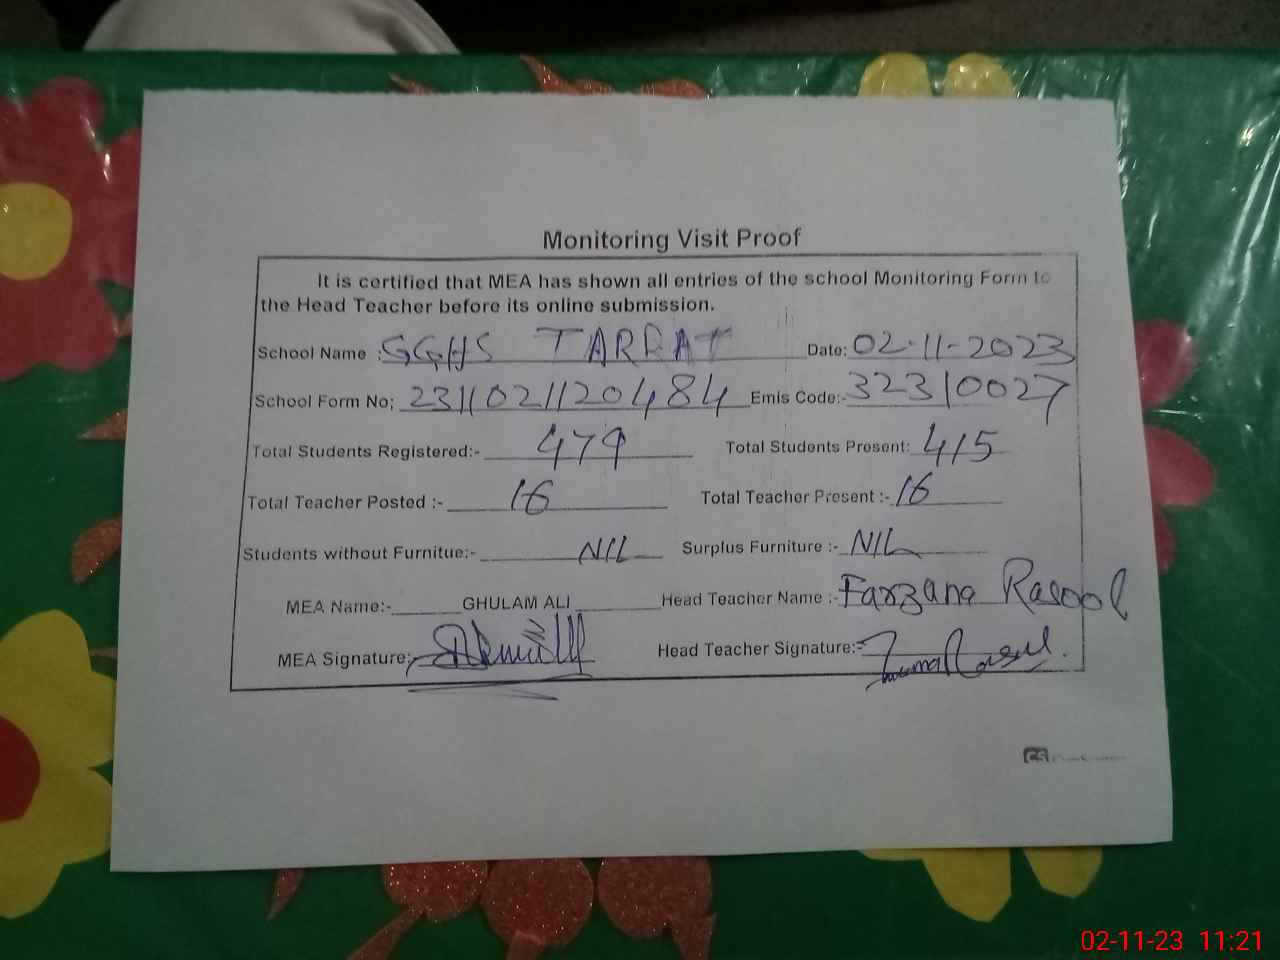 Monitoring Visit Proof
It is certified that MEA has shown all entries of the school Monitoring Form to
the Head Teacher before its online submission.
School Name : GGHS TARRAT Date: 02-11-2023
School Form No; 2311021120484 Emis Code:- 32310027
Total Students Registered:- 479 Total Students Present: 415
Total Teacher Posted :- 16 Total Teacher Present :- 16
Students without Furnitue:- NIL Surplus Furniture :- NIL
MEA Name:- GHULAM ALI Head Teacher Name :- Farzana Rasool
MEA Signature: Head Teacher Signature:-
CS
02-11-23 11:21